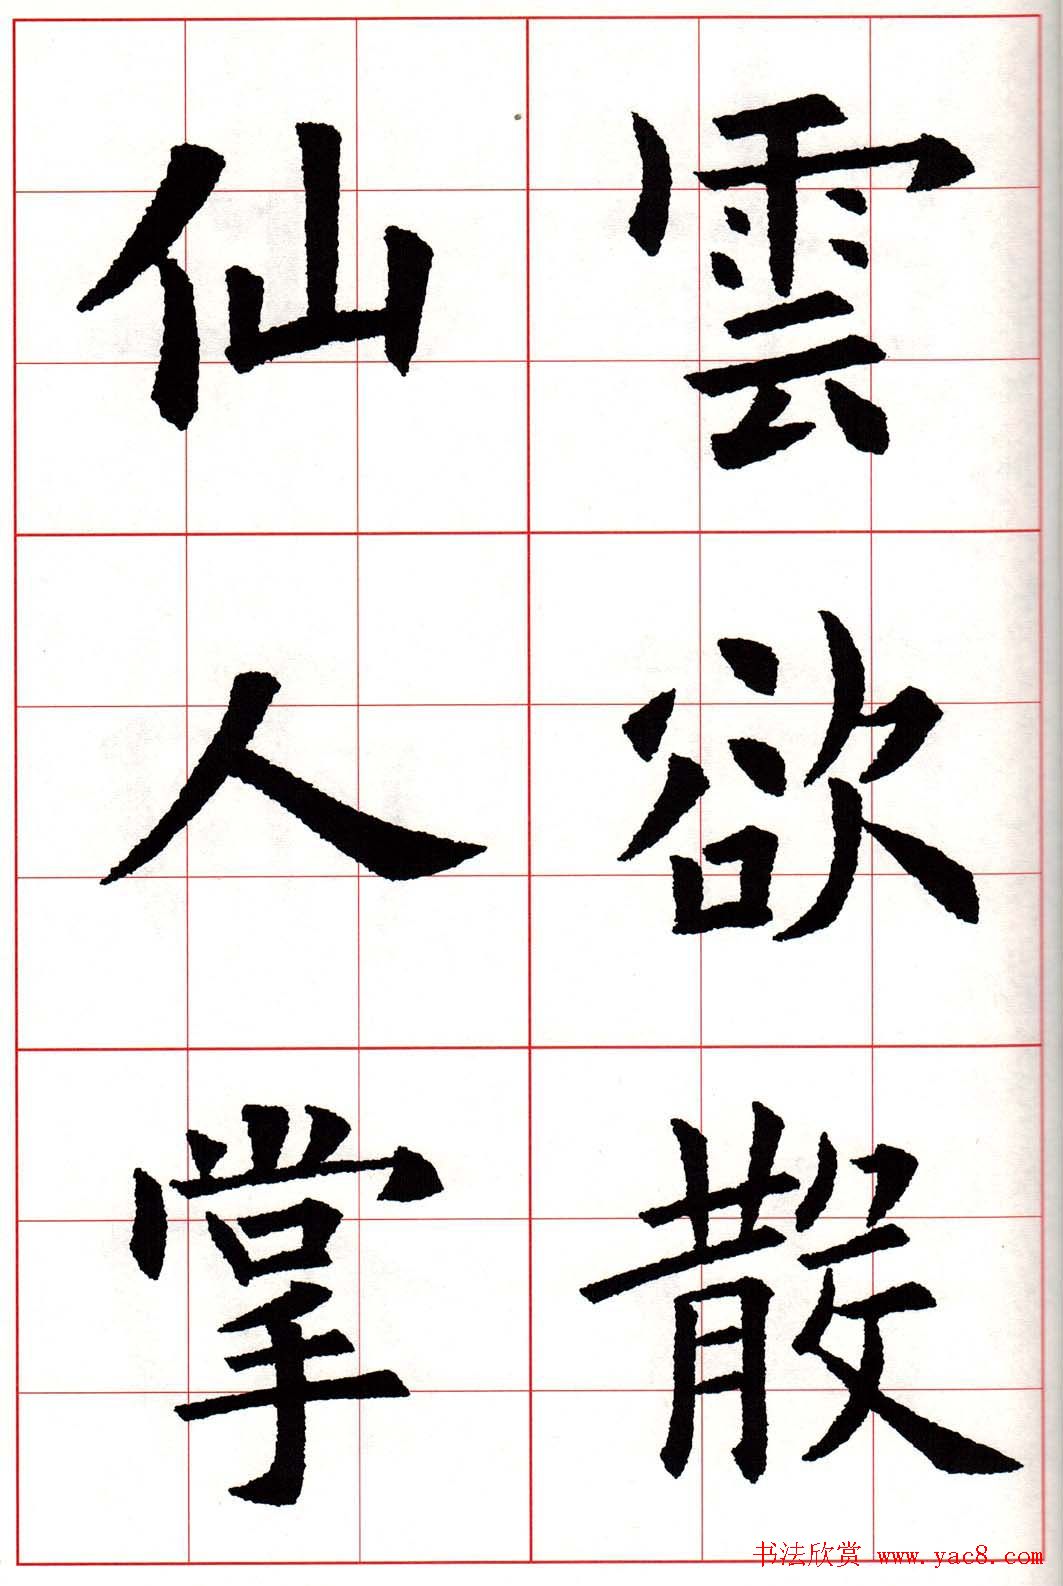 雲欲散
仙人掌
书法欣赏 www.yac8.com